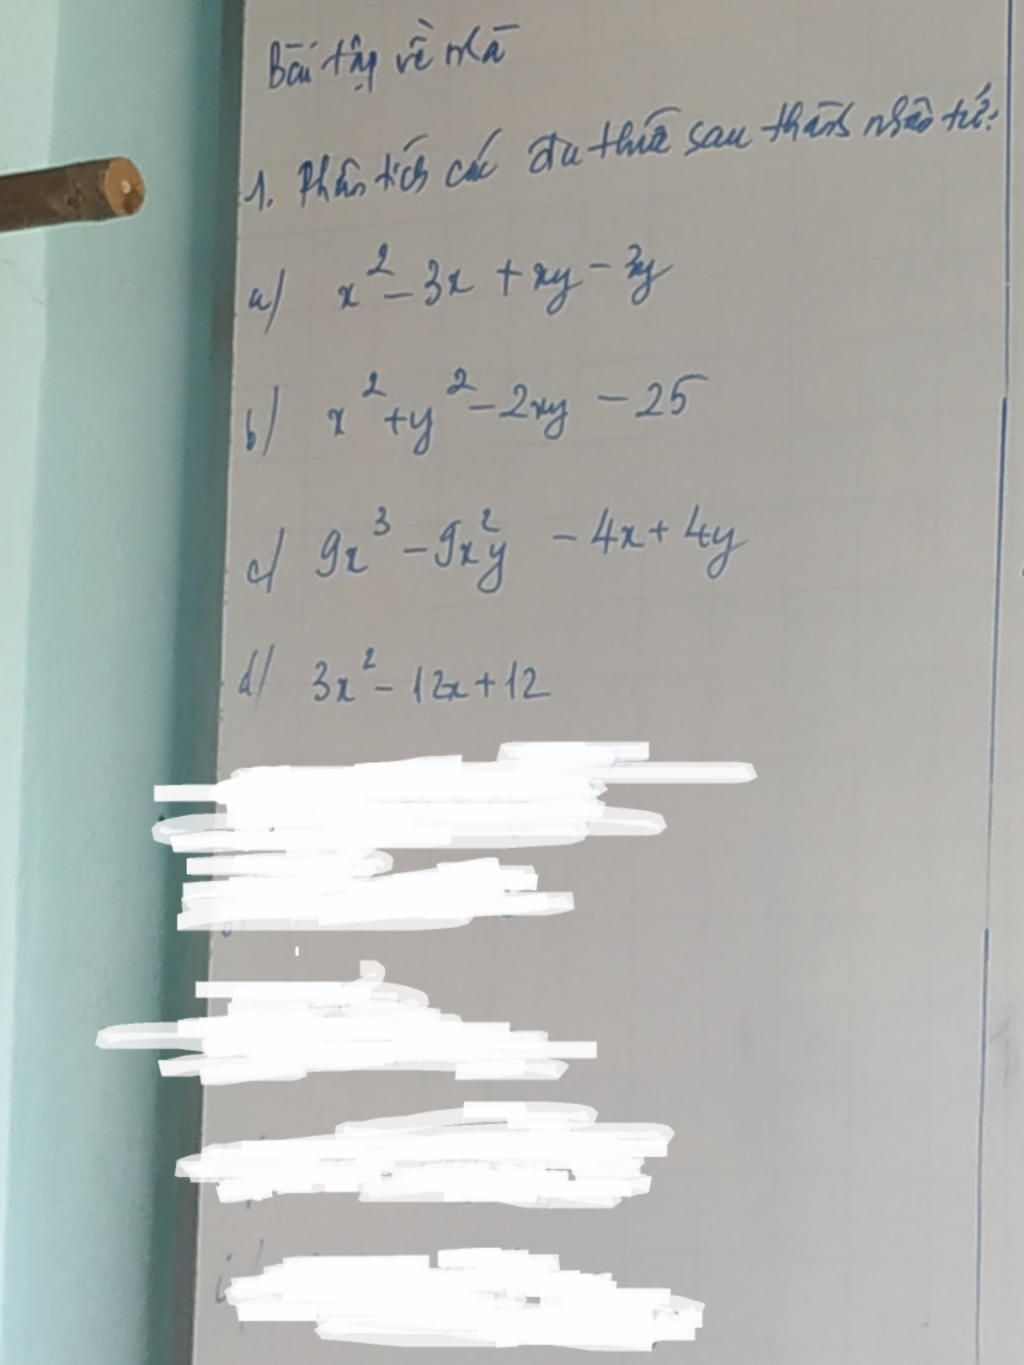 Bài tập về nhà
1. Phân tích các đa thức sau thành nhân tử:
a/ x² - 3x + xy - 3y
b/ x² + y² - 2xy - 25
c/ 9x³ - 9x²y - 4x + 4y
d/ 3x² - 12x + 12